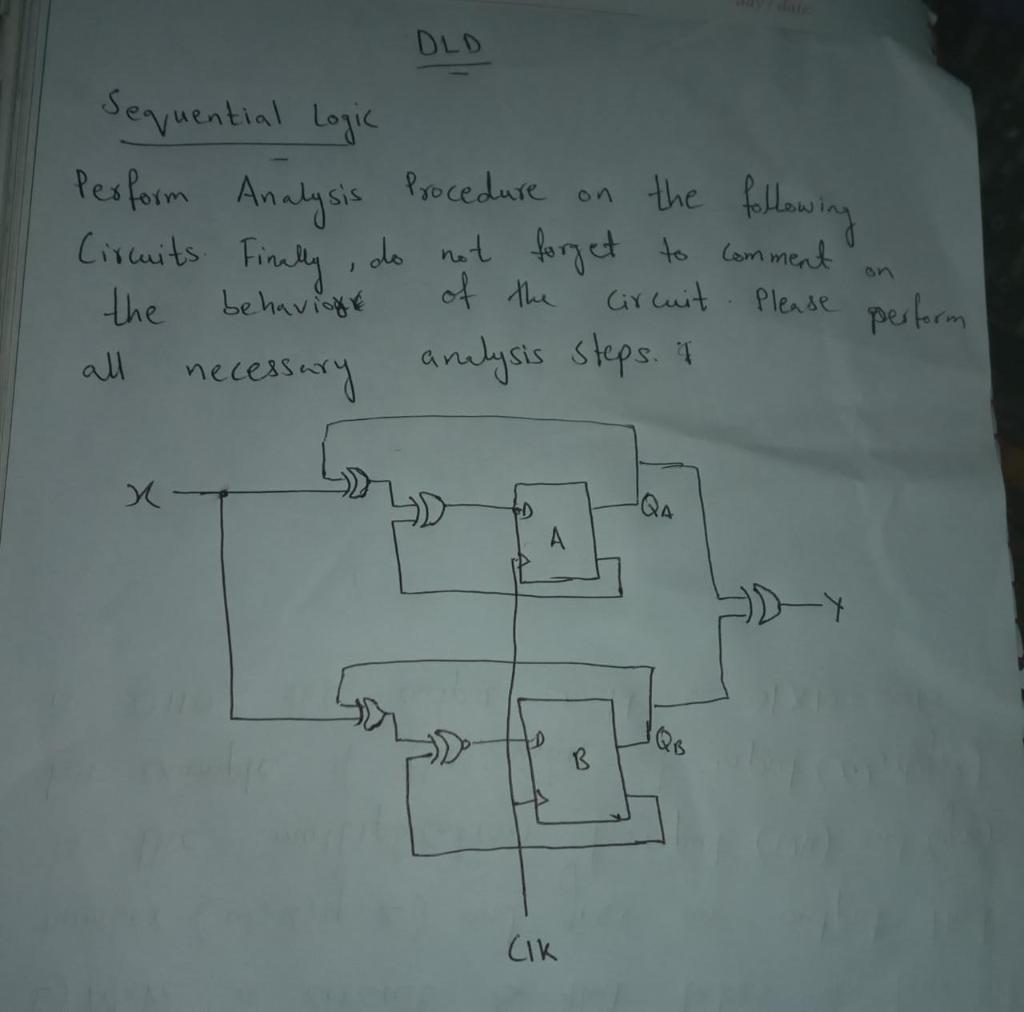 day / date
DLD
Sequential Logic
Perform Analysis Procedure on the following
Circuits. Finally, do not forget to comment on
the behaviore of the circuit. Please perform
all necessary analysis steps.
x
D
A
QA
Y
D
B
QB
Clk